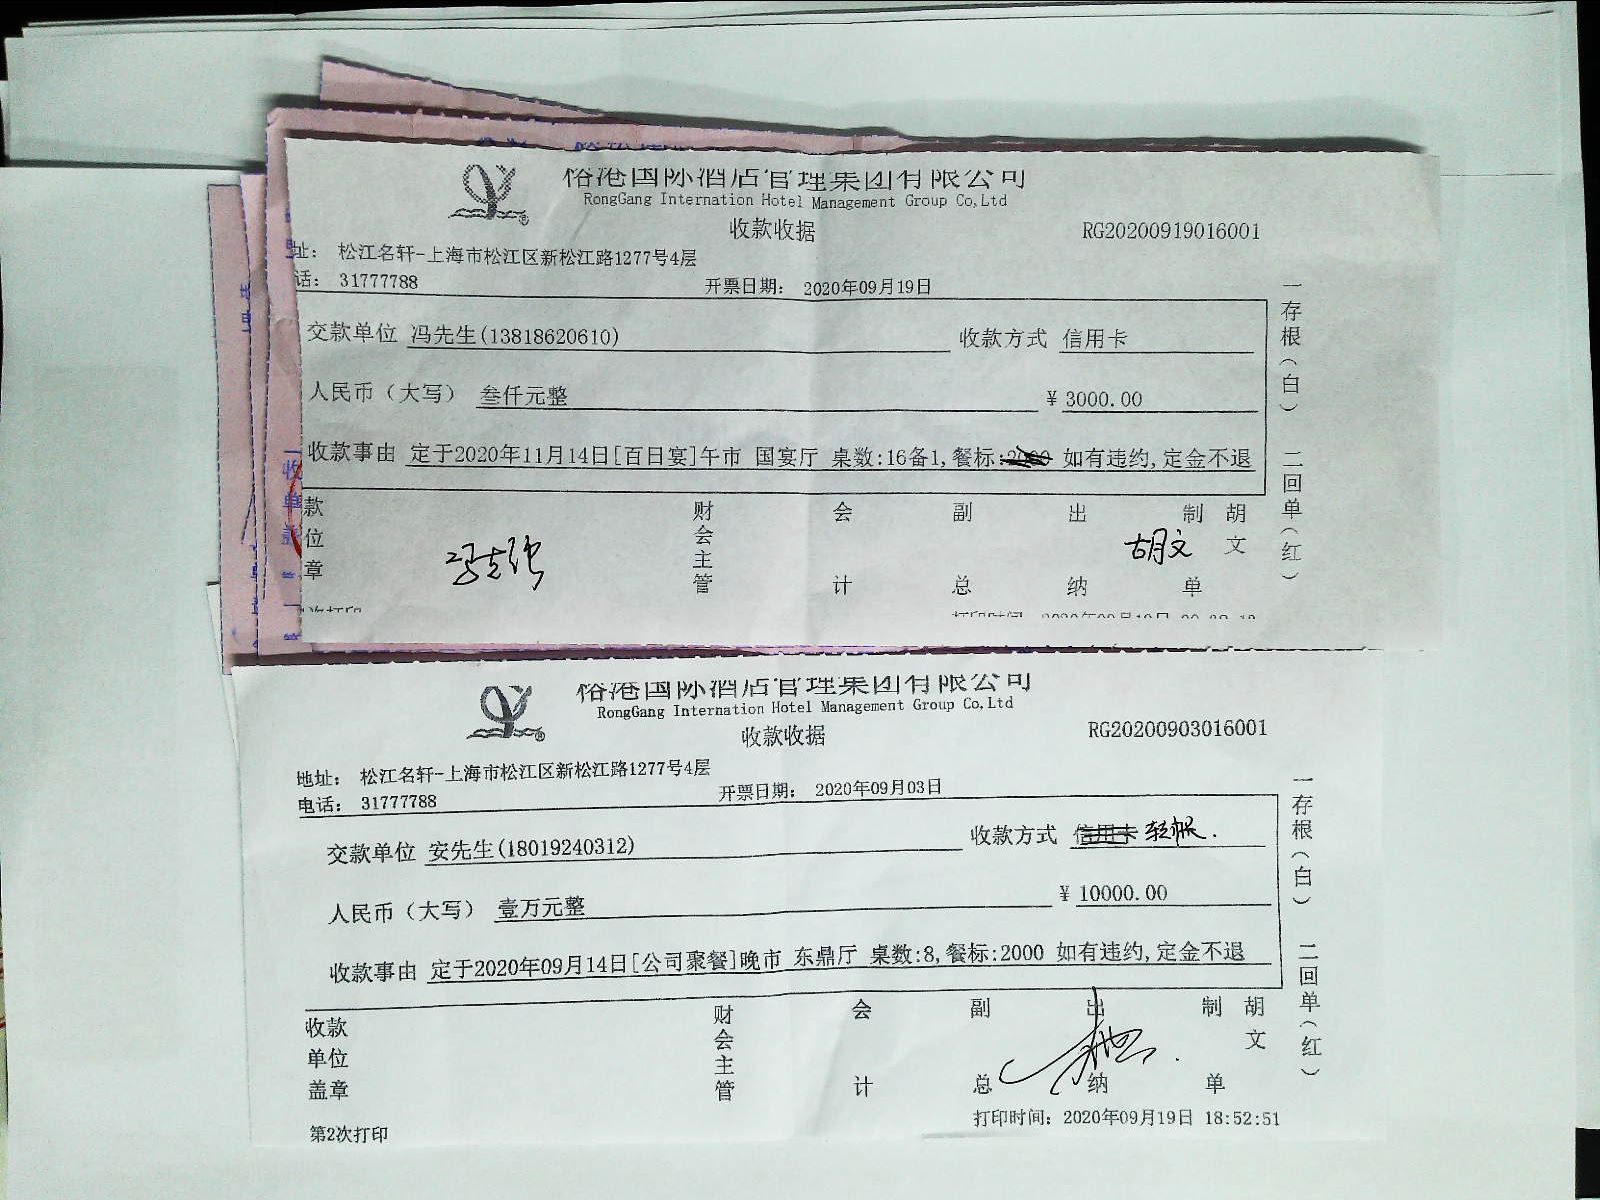 裕港国际酒店管理集团有限公司
RongGang Internation Hotel Management Group Co,Ltd
收款收据
RG20200919016001
址： 松江名轩-上海市松江区新松江路1277号4层
话： 31777788
开票日期： 2020年09月19日
交款单位 冯先生(13818620610) 收款方式 信用卡
人民币（大写） 叁仟元整 ¥ 3000.00
收款事由 定于2020年11月14日[百日宴]午市 国宴厅 桌数:16备1,餐标: 如有违约,定金不退
款位章 财会主管 会计 副总 出纳 制单 胡文
胡文
一存根（白） 二回单（红）
裕港国际酒店管理集团有限公司
RongGang Internation Hotel Management Group Co,Ltd
收款收据
RG20200903016001
地址： 松江名轩-上海市松江区新松江路1277号4层
电话： 31777788
开票日期： 2020年09月03日
交款单位 安先生(18019240312) 收款方式 信用卡
人民币（大写） 壹万元整 ¥ 10000.00
收款事由 定于2020年09月14日[公司聚餐]晚市 东鼎厅 桌数:8,餐标:2000 如有违约,定金不退
收款单位盖章 财会主管 会计 副总 出纳 制单 胡文
一存根（白） 二回单（红）
打印时间：2020年09月19日 18:52:51
第2次打印